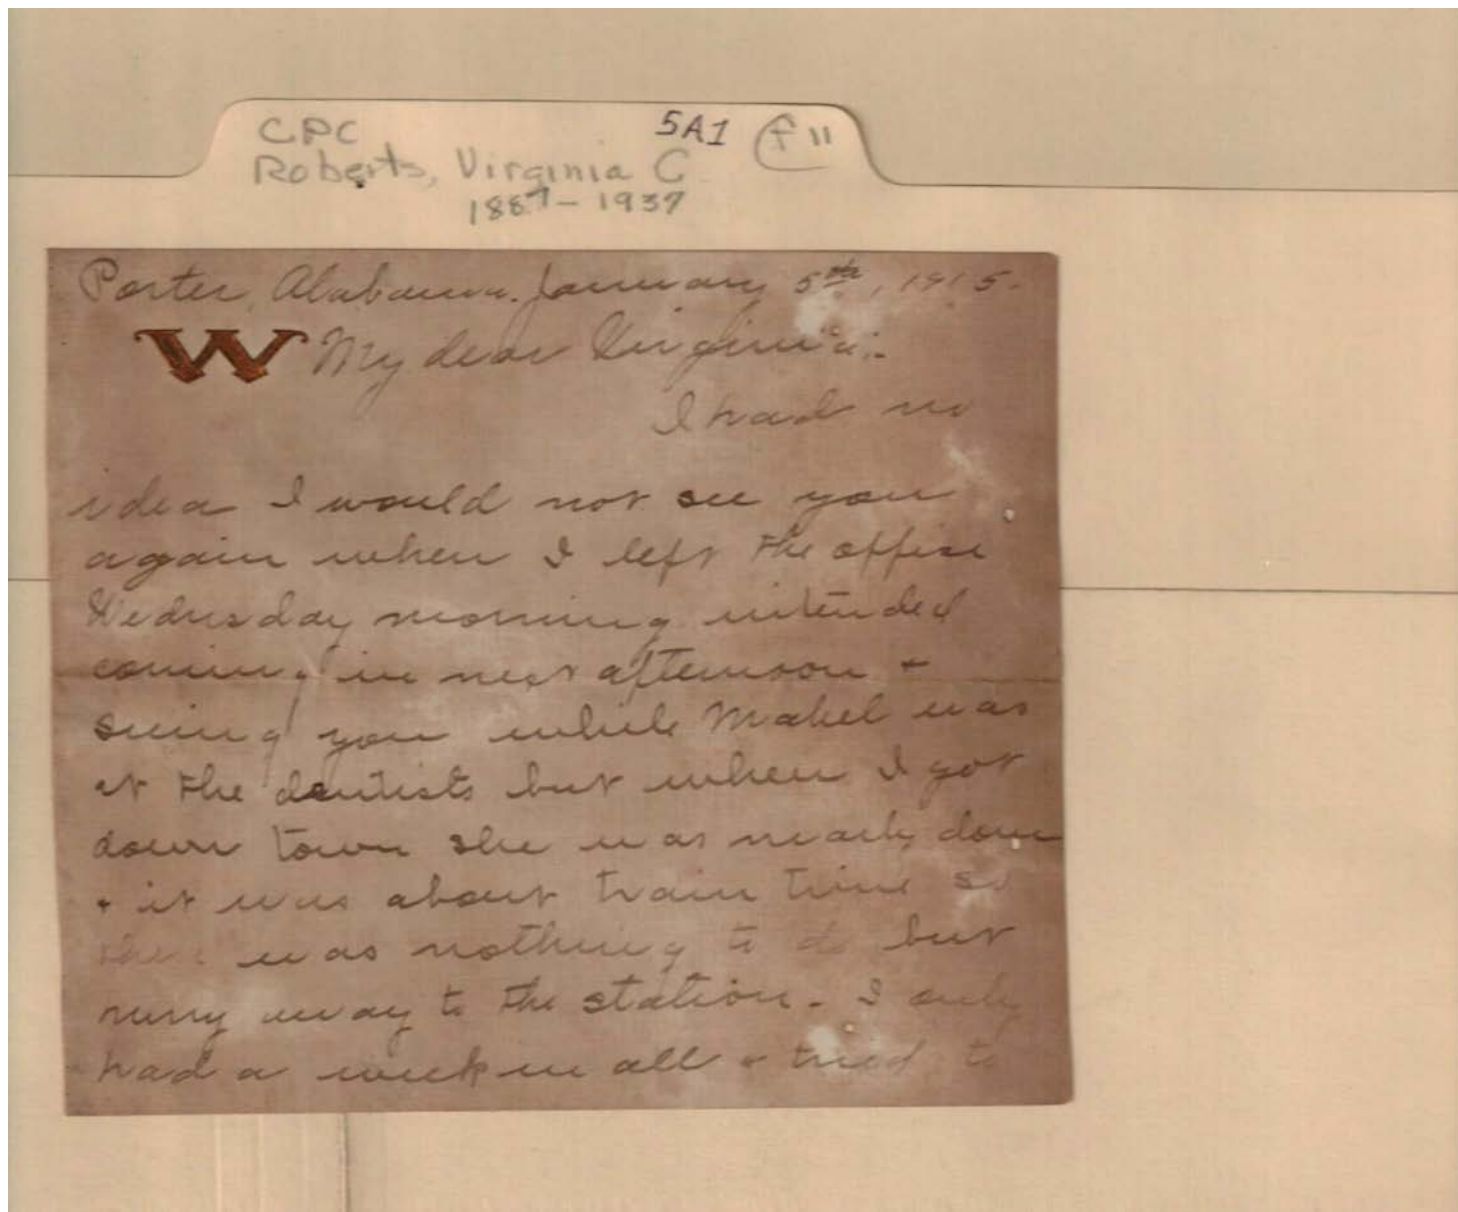 CPC 5A1 f 11
Roberts, Virginia C
1887-1937
Porter, Alabama. January 5th, 1915.
W My dear Virginia:-
I had no
idea I would not see you
again when I left the office
Wednesday morning intended
coming in next afternoon +
seeing you while Mabel was
at the dentists but when I got
down town she was nearly done
+ it was about train time so
there was nothing to do but
my way to the station. I only
had a week in all + tried to